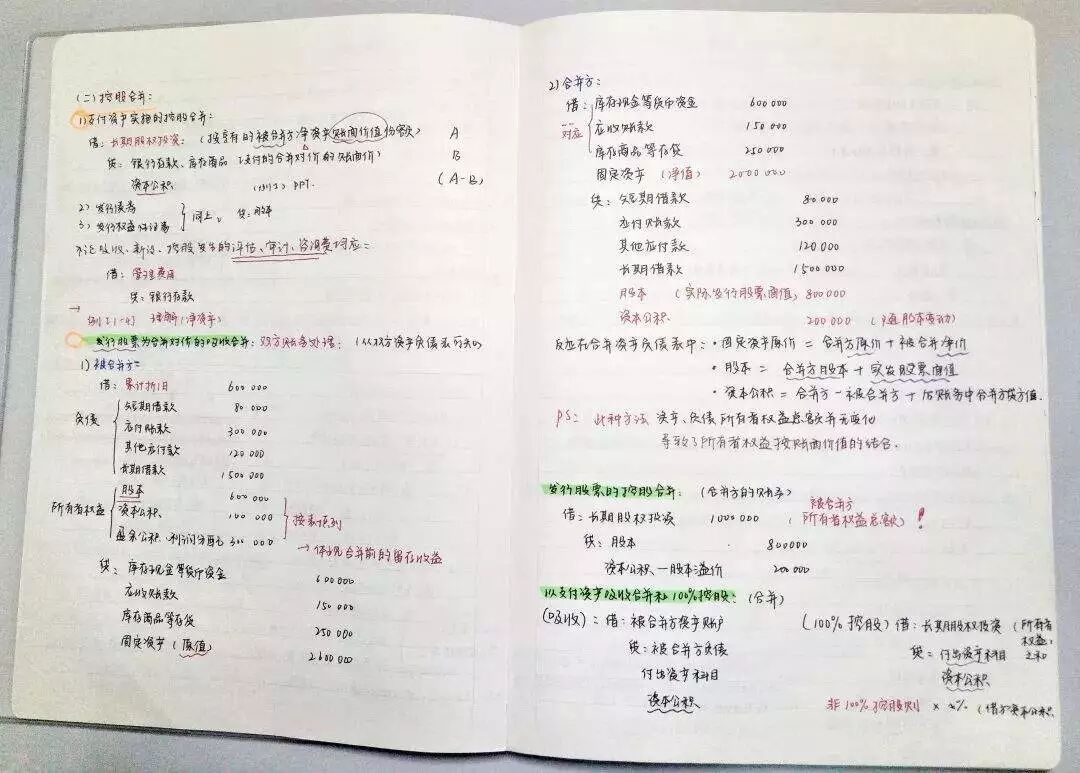 (二)控股合并:
1)支付资产实施的控股合并:
借:长期股权投资:(按享有的被合并方净资产账面价值份额) A
贷:银行存款、库存商品(支付的合并对价的账面价) B
资本公积 PPT. (A-B)
2)发行债券
3)发行权益性证券 } 同上、 贷:股本
不论吸收、新设、控股发生的评估、审计、咨询费均应:
借:管理费用
贷:银行存款
→ 例[1-4] 理解(净资产)
发行股票为合并对价的吸收合并:双方账务处理:(从双方资产负债表可知)
1)被合并方:
借:累计折旧 600 000
负债 短期借款 80 000
应付账款 300 000
其他应付款 120 000
长期借款 1500 000
所有者权益 股本 600 000
资本公积 100 000
盈余公积、利润分配 300 000
} 按表顺列
→体现合并前的留存收益
贷:库存现金等货币资金 600 000
应收账款 150 000
库存商品等存货 250 000
固定资产(原值) 2600 000
2)合并方:
借:库存现金等货币资金 600 000
对应 应收账款 150 000
库存商品等存货 250 000
固定资产(净值) 2000 000
贷:短期借款 80 000
应付账款 300 000
其他应付款 120 000
长期借款 1500 000
股本 (实际发行股票面值) 800 000
资本公积 200 000 (随股本变动)
反应在合并资产负债表中:·固定资产原价 = 合并方原价 + 被合并净价
·股本 = 合并方股本 + 实发股票面值
·资本公积 = 合并方-被合并方 + 账务中合并方贷方值.
PS:此种方法 资产、负债 所有者权益总额并无变化
导致了所有者权益按账面价值的结合.
发行股票的控股合并:(合并方的账务)
借:长期股权投资 1000 000 (被合并方所有者权益总额) !
贷:股本 800000
资本公积—股本溢价 200 000
以支付资产吸收合并和100%控股:(合并)
(吸收):借:被合并方资产账户
贷:被合并方负债
付出资产科目
资本公积
(100%控股)借:长期股权投资 (所有者权益之和)
贷:付出资产科目
资本公积
非100%控股则 × x% (借方资本公积